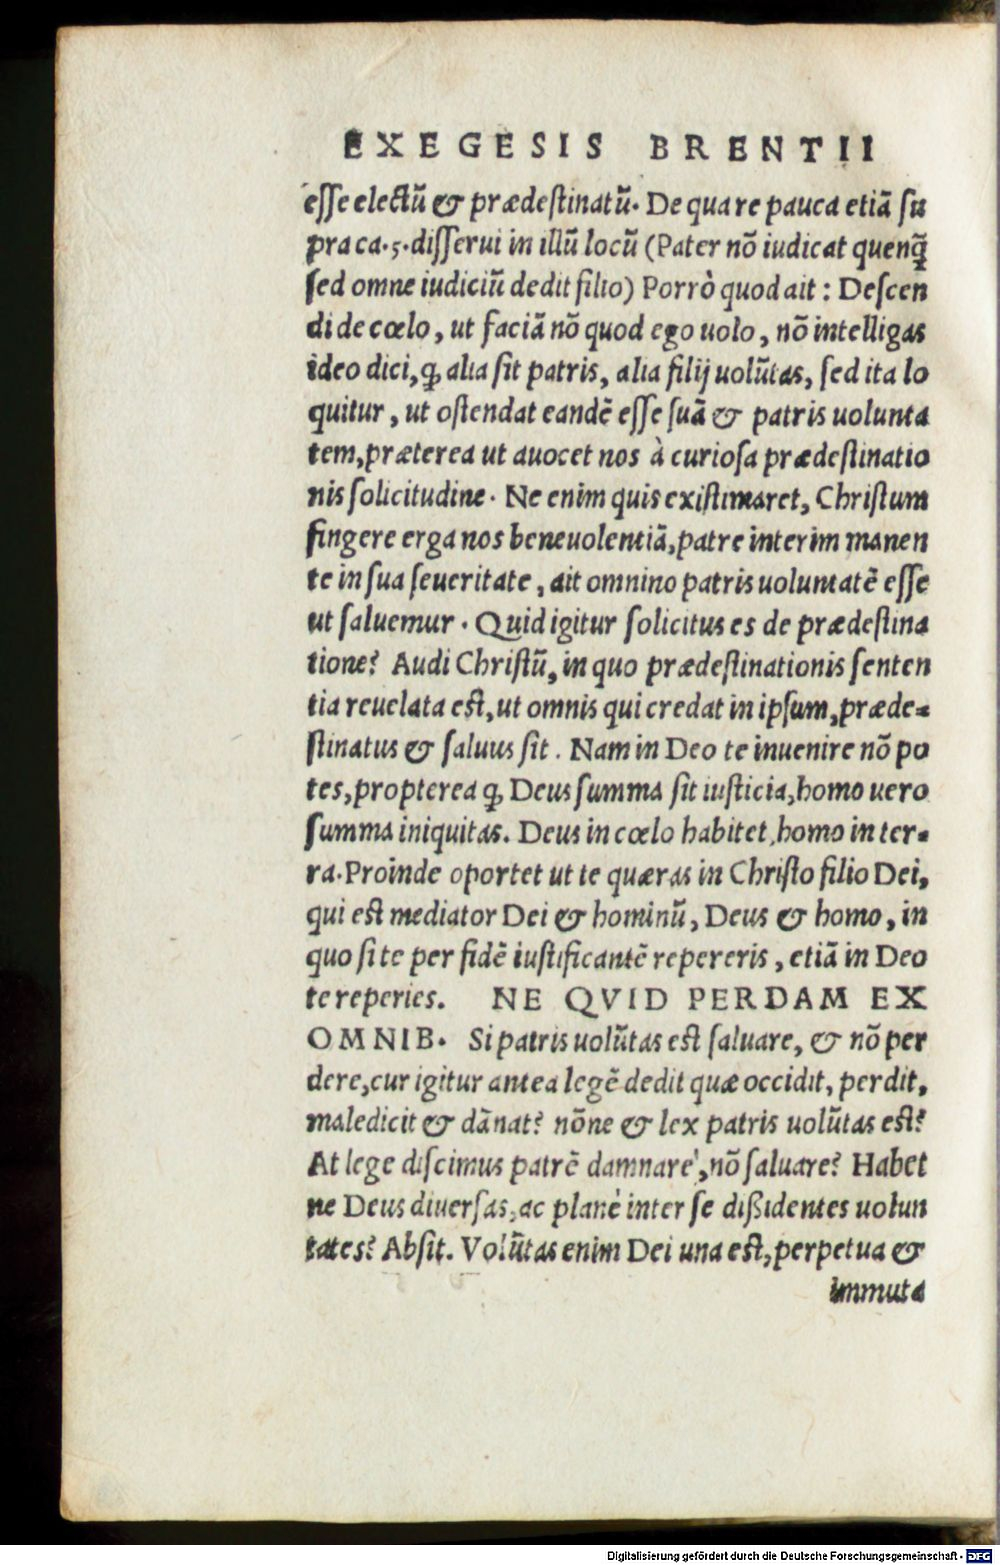 EXEGESIS BRENTII
esse electũ & prædestinatũ. De qua re pauca etiã su
pra ca.5.disserui in illũ locũ (Pater nõ iudicat quenq̃
sed omne iudiciũ dedit filio) Porrò quod ait : Descen
di de cœlo, ut faciã nõ quod ego uolo, nõ intelligas
ideo dici, ꝙ alia sit patris, alia filij uolũtas, sed ita lo
quitur, ut ostendat eandẽ esse suã & patris uolunta
tem, præterea ut auocet nos à curiosa prædestinatio
nis solicitudine. Ne enim quis existimaret, Christum
fingere erga nos beneuolentiã, patre interim manen
te in sua seueritate, ait omnino patris uoluntatẽ esse
ut saluemur. Quid igitur solicitus es de prædestina
tione? Audi Christũ, in quo prædestinationis senten
tia reuelata est, ut omnis qui credat in ipsum, præde-
stinatus & saluus sit. Nam in Deo te inuenire nõ po
tes, propterea ꝙ Deus summa sit iusticia, homo uero
summa iniquitas. Deus in cœlo habitet, homo in ter-
ra. Proinde oportet ut te quæras in Christo filio Dei,
qui est mediator Dei & hominũ, Deus & homo, in
quo si te per fidẽ iustificantẽ repereris, etiã in Deo
te reperies. NE QVID PERDAM EX
OMNIB. Si patris uolũtas est saluare, & nõ per
dere, cur igitur antea legẽ dedit quæ occidit, perdit,
maledicit & dãnat? nõne & lex patris uolũtas est?
At lege discimus patrẽ damnare, nõ saluare? Habet
ne Deus diuersas, ac planè inter se dißidentes uolun
tates? Absit. Volũtas enim Dei una est, perpetua &
immuta
Digitalisierung gefördert durch die Deutsche Forschungsgemeinschaft - DFG